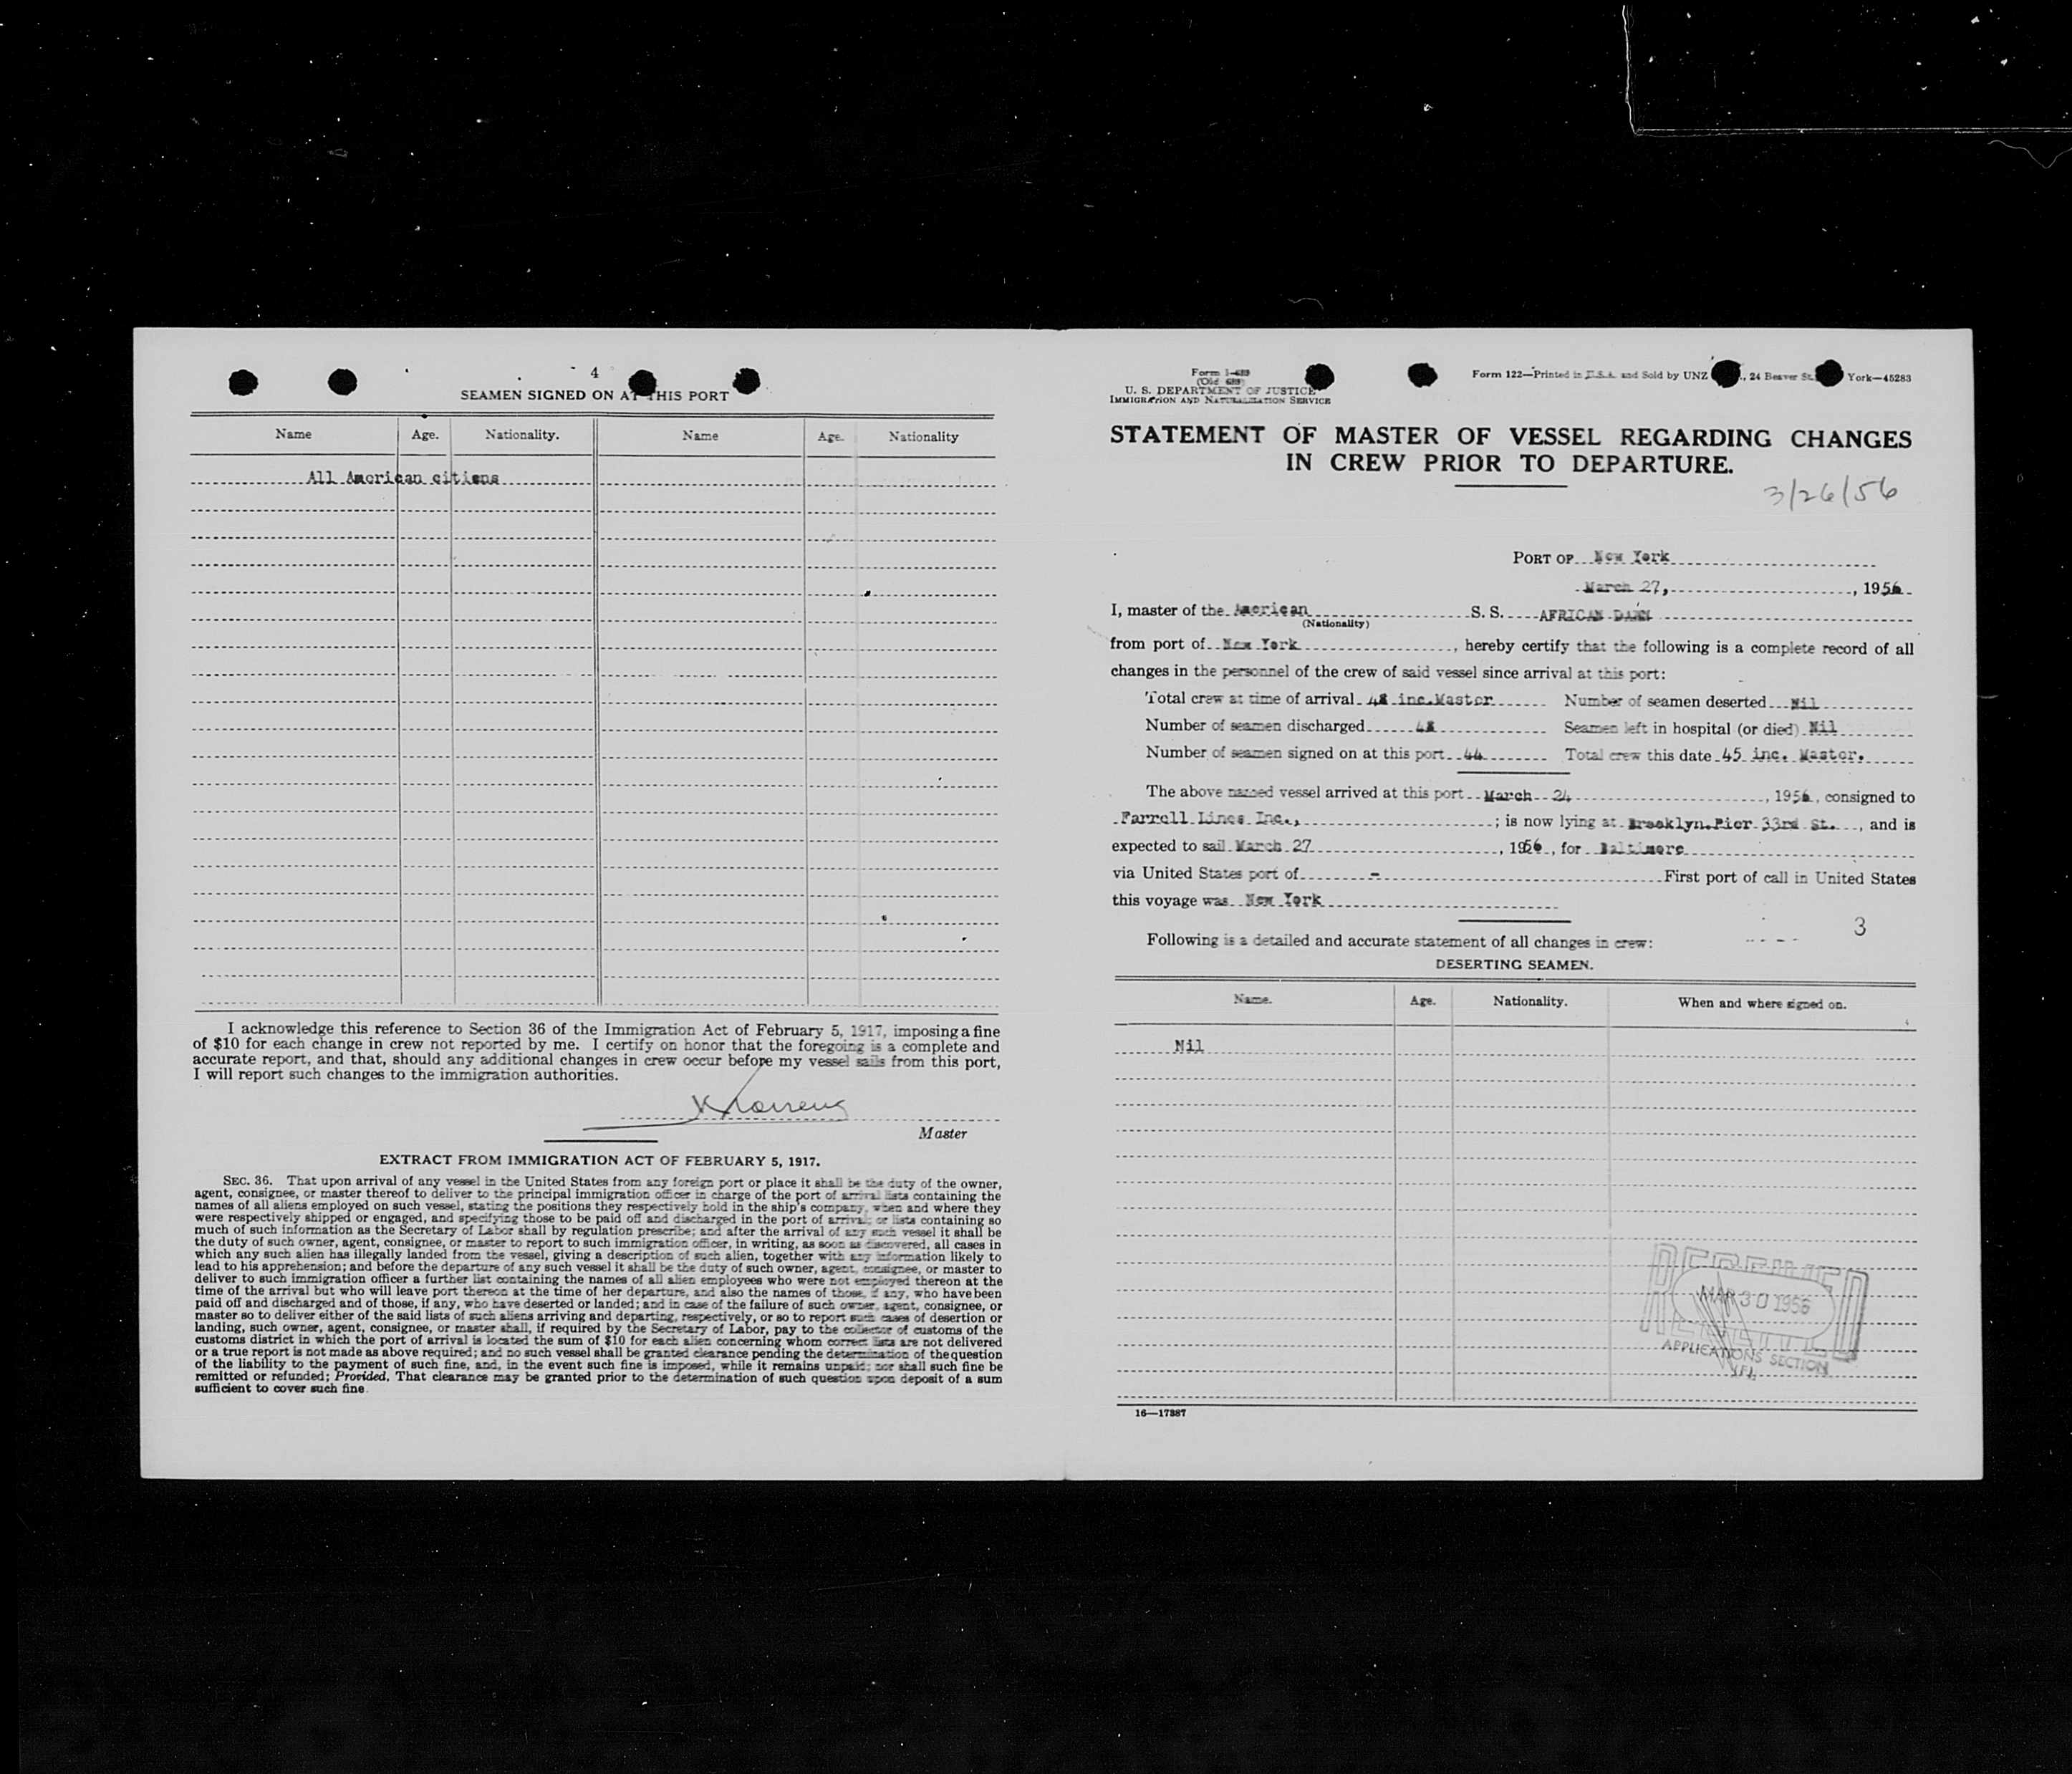 4
SEAMEN SIGNED ON AT THIS PORT
Name Age. Nationality. Name Age. Nationality
All American citiens
I acknowledge this reference to Section 36 of the Immigration Act of February 5, 1917, imposing a fine
of $10 for each change in crew not reported by me. I certify on honor that the foregoing is a complete and
accurate report, and that, should any additional changes in crew occur before my vessel sails from this port,
I will report such changes to the immigration authorities.
Master
EXTRACT FROM IMMIGRATION ACT OF FEBRUARY 5, 1917.
SEC. 36. That upon arrival of any vessel in the United States from any foreign port or place it shall be the duty of the owner,
agent, consignee, or master thereof to deliver to the principal immigration officer in charge of the port of arrival lists containing the
names of all aliens employed on such vessel, stating the positions they respectively hold in the ship's company, when and where they
were respectively shipped or engaged, and specifying those to be paid off and discharged in the port of arrival; or lists containing so
much of such information as the Secretary of Labor shall by regulation prescribe; and after the arrival of any such vessel it shall be
the duty of such owner, agent, consignee, or master to report to such immigration officer, in writing, as soon as discovered, all cases in
which any such alien has illegally landed from the vessel, giving a description of such alien, together with any information likely to
lead to his apprehension; and before the departure of any such vessel it shall be the duty of such owner, agent, consignee, or master to
deliver to such immigration officer a further list containing the names of all alien employees who were not employed thereon at the
time of the arrival but who will leave port thereon at the time of her departure, and also the names of those, if any, who have been
paid off and discharged and of those, if any, who have deserted or landed; and in case of the failure of such owner, agent, consignee, or
master so to deliver either of the said lists of such aliens arriving and departing, respectively, or so to report such cases of desertion or
landing, such owner, agent, consignee, or master shall, if required by the Secretary of Labor, pay to the collector of customs of the
customs district in which the port of arrival is located the sum of $10 for each alien concerning whom correct lists are not delivered
or a true report is not made as above required; and no such vessel shall be granted clearance pending the determination of the question
of the liability to the payment of such fine, and, in the event such fine is imposed, while it remains unpaid; nor shall such fine be
remitted or refunded; Provided, That clearance may be granted prior to the determination of such question upon deposit of a sum
sufficient to cover such fine.
Form I-489
(Old 689)
U. S. DEPARTMENT OF JUSTICE
IMMIGRATION AND NATURALIZATION SERVICE
Form 122—Printed in U.S.A. and Sold by UNZ ., 24 Beaver St. York—45283
STATEMENT OF MASTER OF VESSEL REGARDING CHANGES
IN CREW PRIOR TO DEPARTURE.
3/26/56
PORT OF New York
March 27, , 1956
I, master of the American S. S. AFRICAN DAWN
(Nationality)
from port of New York , hereby certify that the following is a complete record of all
changes in the personnel of the crew of said vessel since arrival at this port:
Total crew at time of arrival 48 inc.Master Number of seamen deserted Nil
Number of seamen discharged 48 Seamen left in hospital (or died) Nil
Number of seamen signed on at this port 44 Total crew this date 45 inc. Master.
The above named vessel arrived at this port March 24 , 1956, consigned to
Farrell Lines Inc., ; is now lying at Brooklyn.Pier 33rd St. , and is
expected to sail March 27 , 1956, for Baltimore
via United States port of - First port of call in United States
this voyage was New York
3
Following is a detailed and accurate statement of all changes in crew:
DESERTING SEAMEN.
Name. Age. Nationality. When and where signed on.
Nil
RECEIVED
MAR 30 1956
APPLICATIONS SECTION
16—17387